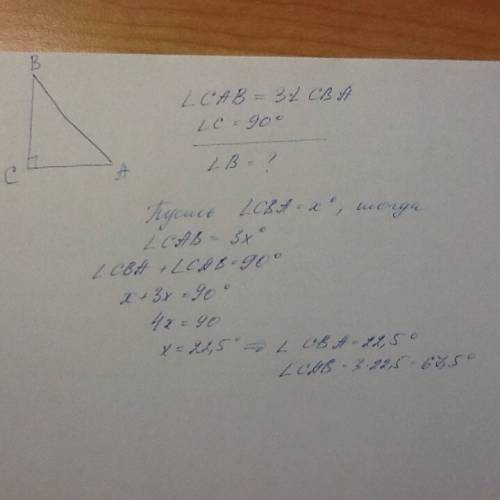 B
C
A
∠CAB = 3∠CBA
∠C = 90°
∠B = ?
Пусть ∠CBA = x°, тогда
∠CAB = 3x°
∠CBA + ∠CAB = 90°
x + 3x = 90°
4x = 90
x = 22,5° ⇒ ∠CBA = 22,5°
∠CAB = 3·22,5 = 67,5°